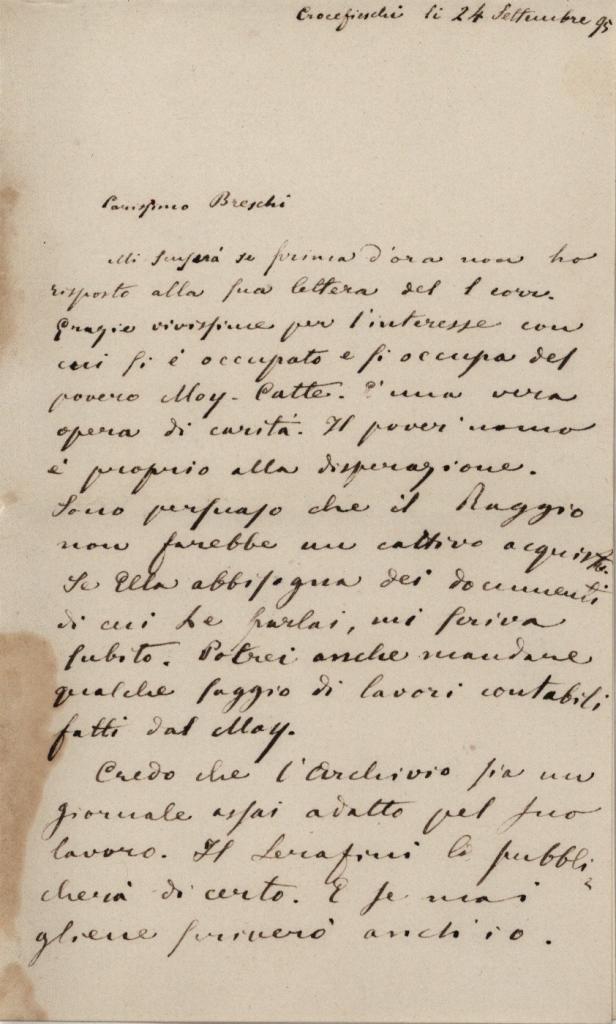 Crocefieschi li 24 Settembre 95
Carissimo Breschi
Mi scuserà se prima d'ora non ho
risposto alla sua lettera del 1 corr.
Grazie vivissime per l'interesse con
cui si è occupato e si occupa del
povero Moy-Catte. È una vera
opera di carità. Il pover'uomo
è proprio alla disperazione.
Sono persuaso che il Raggio
non farebbe un cattivo acquisto.
Se Ella abbisogna dei documenti
di cui Le parlai, mi scriva
subito. Potrei anche mandare
qualche saggio di lavori contabili
fatti dal Moy.
Credo che l'Archivio sia un
giornale assai adatto pel suo
lavoro. Il Serafini lo pubbli-
cherà di certo. E se mai
gliene scriverò anch'io.